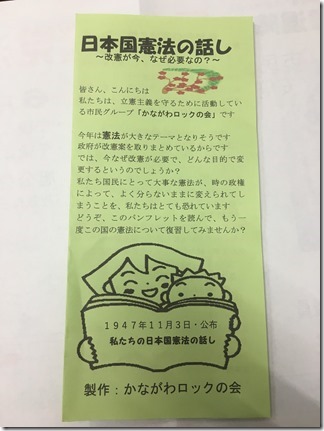 日本国憲法の話し
～改憲が今、なぜ必要なの？～
皆さん、こんにちは
私たちは、立憲主義を守るために活動してい
る市民グループ「かながわロックの会」です
今年は憲法が大きなテーマとなりそうです
政府が改憲案を取りまとめているからです
では、今なぜ改憲が必要で、どんな目的で変
更するというのでしょうか？
私たち国民にとって大事な憲法が、時の政権
によって、よく分らないままに変えられてしま
うことを、私たちはとても恐れています
どうぞ、このパンフレットを読んで、もう一
度この国の憲法について復習してみませんか？
１９４７年１１月３日・公布
私たちの日本国憲法の話し
製作：かながわロックの会